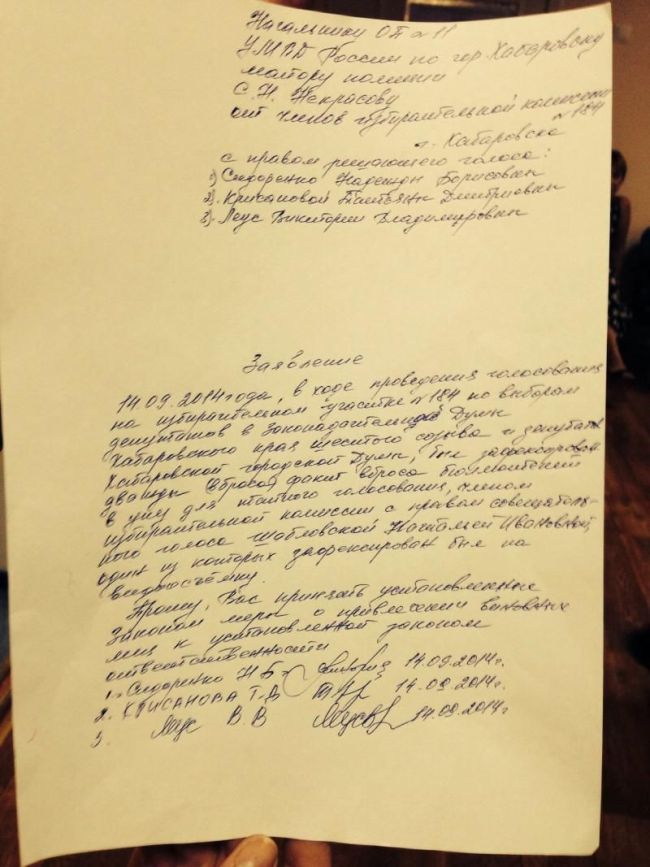 Начальнику ОП № 11
УМВД России по гор Хабаровску
майору полиции
С.Н. Некрасову
от членов избирательной комиссии
№ 184
г. Хабаровска
с правом решающего голоса:
1) Сидоренко Надежды Борисовны
2). Крисановой Татьяны Дмитриевны
3). Леус Виктории Владимировны
Заявление
14.09.2014 года, в ходе проведения голосования
на избирательном участке № 184 по выборам
депутатов в Законодательную Думы
Хабаровского края шестого созыва и депутатов
Хабаровской городской Думы, был зафиксирован
дважды факт вброса бюллетеней
в урну для голосования, членом
избирательной комиссии с правом совещатель-
ного голоса Шабловской Натальей Ивановной,
один из которых зафиксирован был на
видеосъёмку.
Прошу, Вас принять установленные
Законом меры о привлечении виновных
лиц к установленной законом
ответственности
1. Сидоренко Н.Б. 14.09.2014г.
2. КРИСАНОВА Т.Д. 14.09.2014г.
3. Леус В.В 14.09.2014г